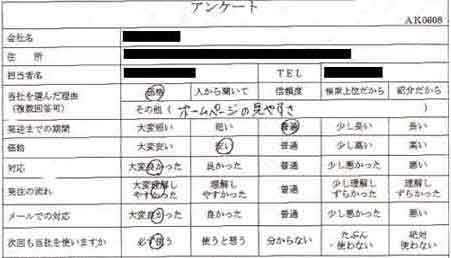 アンケート
AK0608
会社名
住所
担当者名 TEL
当社を選んだ理由 価格 人から聞いて 信頼度 検索上位だから 紹介だから
(複数回答可) その他( ホームページの見やすさ )
発送までの期間 大変短い 短い 普通 少し長い 長い
価格 大変安い 安い 普通 少し高い 高い
対応 大変良かった 良かった 普通 少し悪かった 悪い
発注の流れ 大変理解し 理解し 普通 少し理解し 理解し
やすかった やすかった ずらかった ずらかった
メールでの対応 大変良かった 良かった 普通 少し悪かった 悪い
次回も当社を使いますか 必ず使う 使うと思う 分からない たぶん 絶対
・使わない 使わない